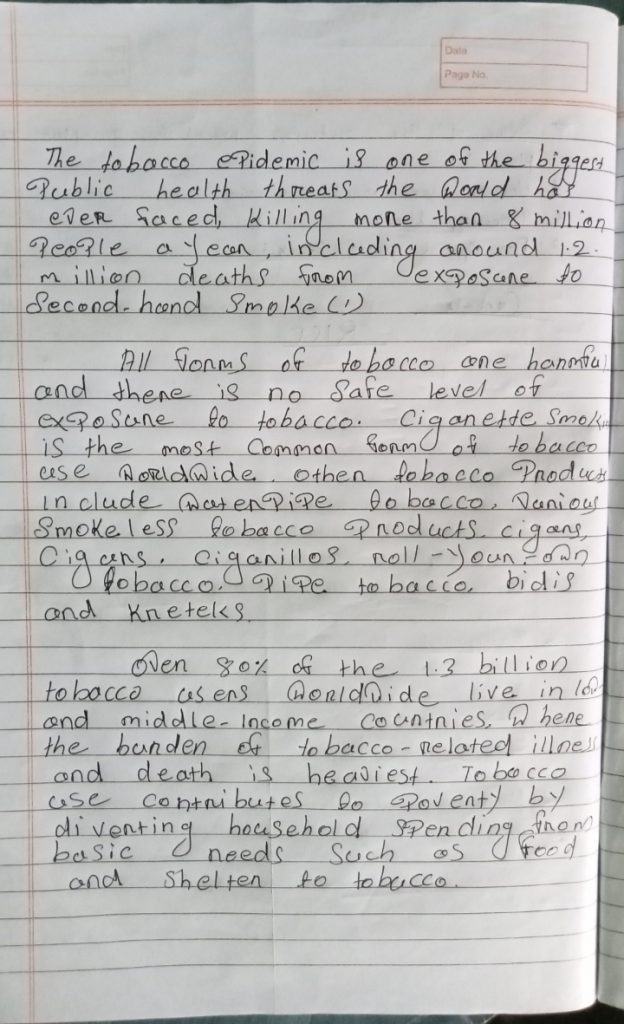 Date
Page No.
The tobacco epidemic is one of the biggest
Public health threats the World has
ever faced, killing more than 8 million
People a year, including around 1.2.
million deaths from exposure to
Second-hand Smoke (1)
All forms of tobacco are harmful
and there is no safe level of
exposure to tobacco. Cigarette Smok
is the most Common form of tobacco
use Worldwide. other tobacco Products
include Waterpipe tobacco, Various
Smokeless tobacco Products. cigars,
Cigars. Cigarillos. roll-your-own
tobacco. Pipe tobacco, bidis
and Kreteks.
Over 80% of the 1.3 billion
tobacco users Worldwide live in low
and middle-Income countries. Where
the burden of tobacco-related illness
and death is heaviest. Tobacco
use contributes to Poverty by
diverting household spending from
basic needs Such as food
and Shelter to tobacco.